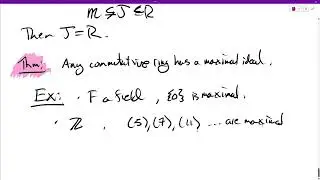 m ⊊ J ⊆ R
Then J = R.
Thm: Any commutative ring has a maximal ideal.
Ex: F a field, {0} is maximal.
· ℤ, (5), (7), (11) ... are maximal